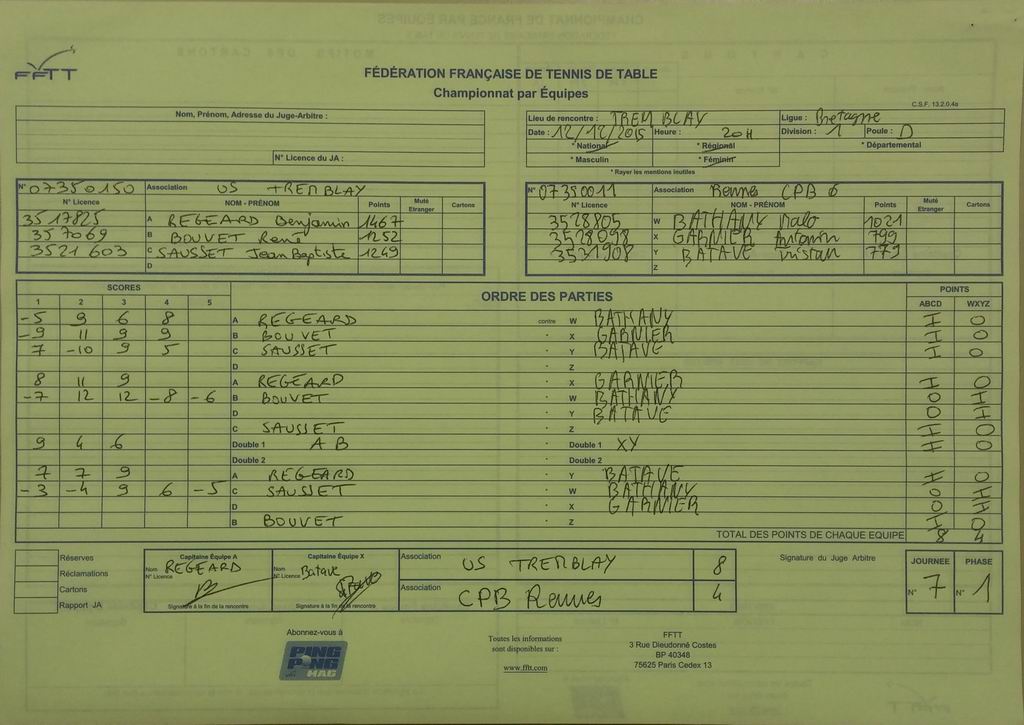 FFTT
FÉDÉRATION FRANÇAISE DE TENNIS DE TABLE
Championnat par Équipes
C.S.F. 13.2.0.4a
Nom, Prénom, Adresse du Juge-Arbitre :
N° Licence du JA :
Lieu de rencontre : TREMBLAY Ligue : Bretagne
Date : 12/12/2015 Heure : 20H Division : 1 Poule : D
* National * Régional * Départemental
* Masculin * Féminin
* Rayer les mentions inutiles
N° 07350150 Association US TREMBLAY
N° Licence NOM - PRÉNOM Points Muté Etranger Cartons
3517825 A REGEARD Benjamin 1467
357069 B BOUVET René 1252
3521603 C SAUSSET Jean Baptiste 1249
D
N° 07350011 Association Rennes CPB 6
N° Licence NOM - PRÉNOM Points Muté Etranger Cartons
3528805 W BATHANY Malo 1021
3528098 X GARNIER Antonin 799
3531908 Y BATAVE Tristan 779
Z
SCORES ORDRE DES PARTIES POINTS
1 2 3 4 5 ABCD WXYZ
-5 9 6 8 A REGEARD contre W BATHANY 1 0
-9 11 9 9 B BOUVET - X GARNIER 1 0
7 -10 9 5 C SAUSSET - Y BATAVE 1 0
D - Z
8 11 9 A REGEARD - X GARNIER 1 0
-7 12 12 -8 -6 B BOUVET - W BATHANY 0 1
D - Y BATAVE 0 1
C SAUSSET - Z 1 0
9 4 6 Double 1 A B - Double 1 XY 1 0
Double 2 - Double 2
7 7 9 A REGEARD - Y BATAVE 1 0
-3 -4 9 6 -5 C SAUSSET - W BATHANY 0 1
D - X GARNIER 0 1
B BOUVET - Z 1 0
TOTAL DES POINTS DE CHAQUE EQUIPE 8 4
Réserves
Réclamations
Cartons
Rapport JA
Capitaine Équipe A
Nom REGEARD
N° Licence
Signature à la fin de la rencontre
Capitaine Équipe X
Nom Batave
N° Licence
Signature à la fin de la rencontre
Association US TREMBLAY 8
Association CPB Rennes 4
Signature du Juge Arbitre
JOURNEE PHASE
N° 7 N° 1
Abonnez-vous à
PING PONG MAG
Toutes les informations
sont disponibles sur :
www.fftt.com
FFTT
3 Rue Dieudonné Costes
BP 40348
75625 Paris Cedex 13